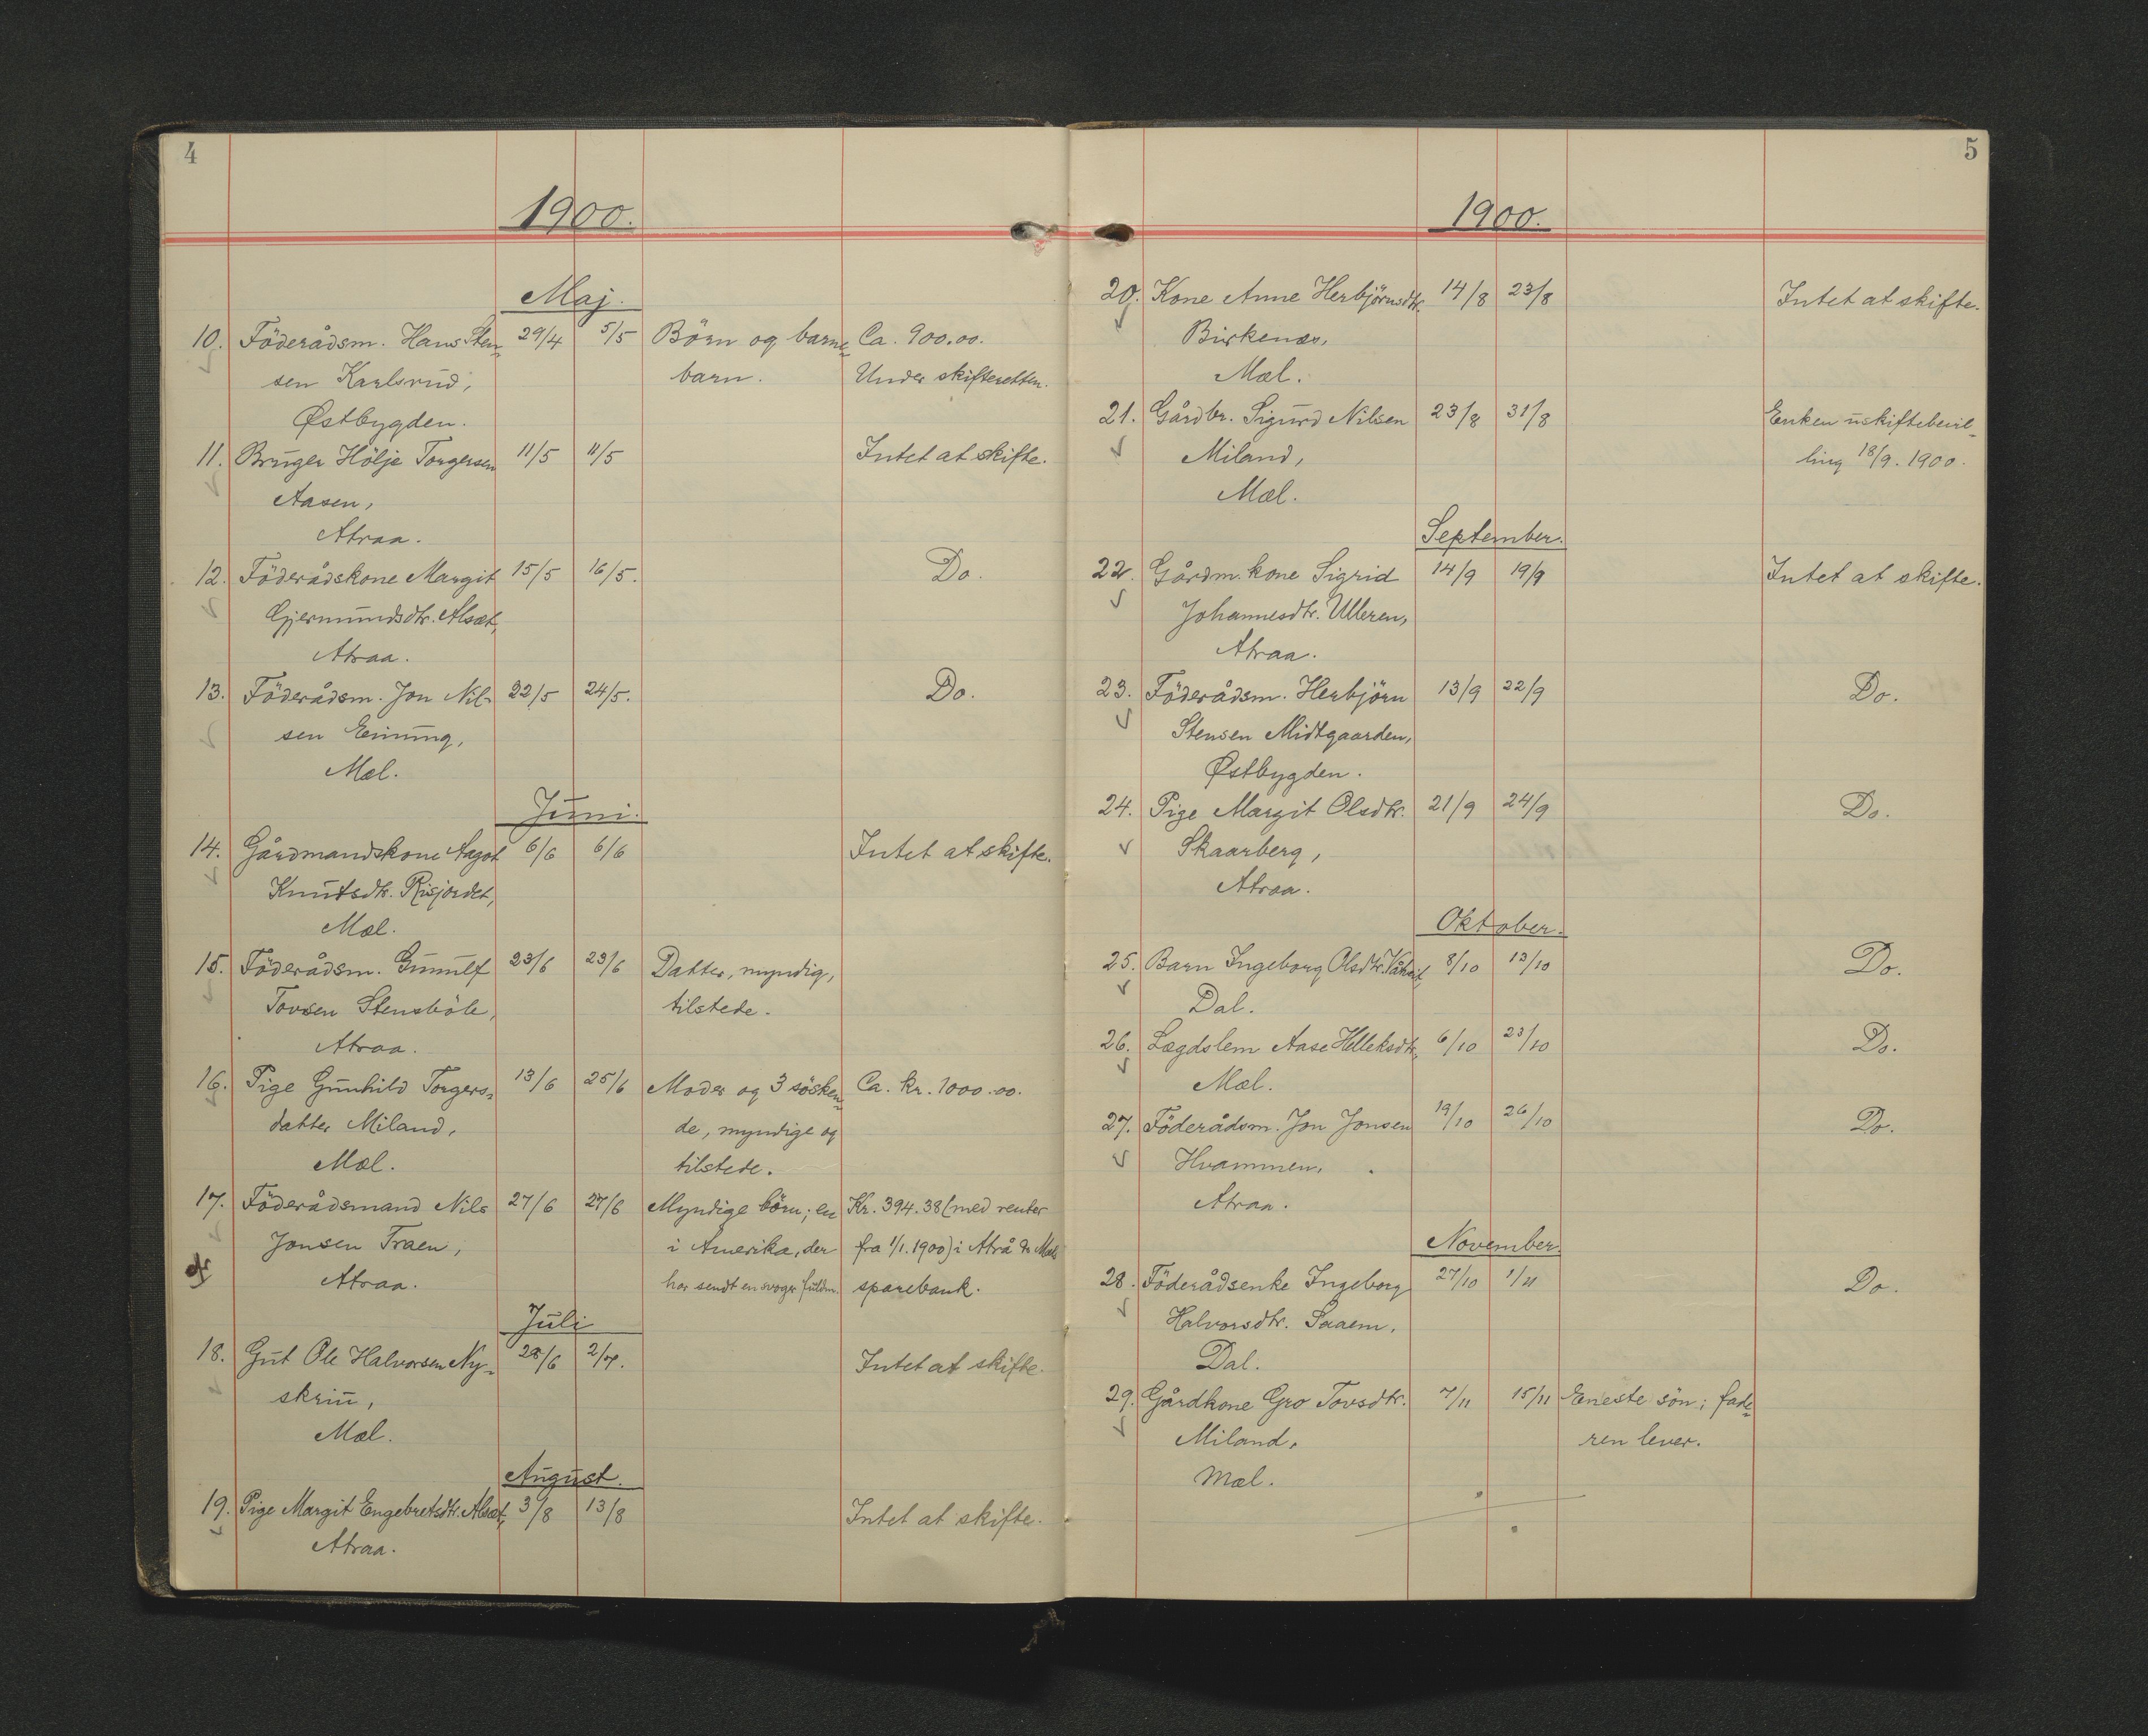 4
1900.
Maj.
10. Föderådsm. Hans Sten- 29/4 5/5 Börn og barne- Ca. 900.00.
sen Karlsrud, barn. Under skifteretten.
Østbygden.
11. Bruger Hölje Torgersen 11/5 11/5 Intet at skifte.
Aasen,
Atraa.
12. Föderådskone Margit 15/5 16/5. Do.
Gjermundsdtr. Alsæt,
Atraa.
13. Föderådsm. Jon Nil- 22/5 24/5. Do.
sen Einung,
Mæl.
Juni.
14. Gårdmandskone Aagot 6/6 6/6 Intet at skifte.
Knutsdtr. Risjordet,
Mæl.
15. Föderådsm. Gunulf 23/6 23/6 Datter, myndig,
Tovsen Stensböle, tilstede.
Atraa.
16. Pige Gunhild Torgers- 13/6 25/6 Moder og 3 sösken- Ca. kr. 1000.00.
datter Miland, de, myndige og
Mæl. tilstede.
17. Föderådsmand Nils 27/6 27/6 Myndige börn; en Kr. 394.38 (med renter
Jonsen Traen, i Amerika, der fra 1/1.1900) i Atrå & Mæls
Atraa. har sendt en svoger fuldm. sparebank.
Juli
18. Gut Ole Halvorsen Ny- 28/6 2/7. Intet at skifte.
skriu,
Mæl.
August.
19. Pige Margit Engebretsdtr. Alsæt, 3/8 13/8 Intet at skifte.
Atraa.
5
1900.
20. Kone Anne Herbjörnsdtr. 14/8 23/8 Intet at skifte.
Birkenæs,
Mæl.
21. Gårdbr. Sigurd Nilsen 23/8 31/8 Enken uskiftebevil-
Miland, ling 18/9.1900.
Mæl.
September.
22. Gårdm. kone Sigrid 14/9 19/9 Intet at skifte.
Johannesdtr. Ulleren,
Atraa.
23. Föderådsm. Herbjörn 13/9 22/9 Do.
Stensen Midtgaarden,
Østbygden.
24. Pige Margit Olsdtr. 21/9 24/9 Do.
Skaarberg,
Atraa.
Oktober.
25. Barn Ingeborg Olsdtr. 8/10 13/10 Do.
Dal.
26. Lægdslem Aase Helleksdtr, 6/10 23/10 Do.
Mæl.
27. Föderådsm. Jon Jonsen 19/10 26/10 Do.
Hvammen,
Atraa.
November.
28. Föderådsenke Ingeborg 27/10 1/11 Do.
Halvorsdtr. Saaem,
Dal.
29. Gårdkone Gro Tovsdtr. 7/11 15/11 Eneste sön; fade-
Miland, ren lever.
Mæl.